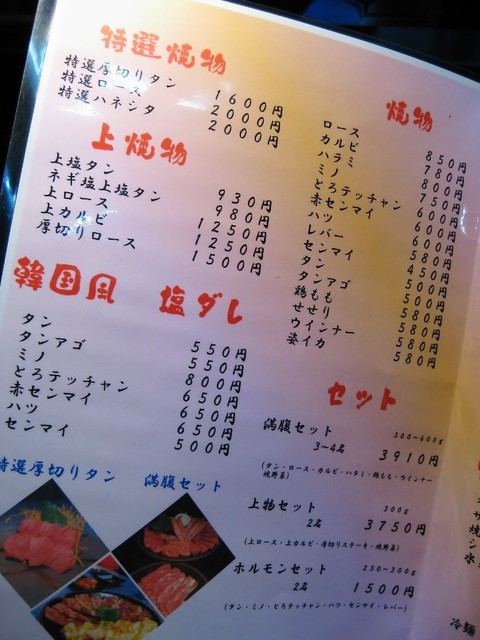 特選焼物
特選厚切りタン 1600円
特選ロース 2000円
特選ハネシタ 2000円
上焼物
上塩タン 930円
ネギ塩上塩タン 980円
上ロース 1250円
上カルビ 1250円
厚切りロース 1500円
韓国風 塩ダレ
タン 550円
タンアゴ 550円
ミノ 800円
とろテッチャン 650円
赤センマイ 650円
ハツ 650円
センマイ 500円
特選厚切りタン 満腹セット
焼物
ロース 850円
カルビ 780円
ハラミ 800円
ミノ 750円
とろテッチャン 600円
赤センマイ 600円
ハツ 600円
レバー 580円
センマイ 450円
タン 500円
タンアゴ 500円
鶏もも 580円
せせり 580円
ウインナー 580円
姿イカ 580円
セット
満腹セット 500~600g
3~4名 3910円
(タン・ロース・カルビ・ハラミ・鶏もも・ウインナー
焼野菜)
上物セット 300g
2名 3750円
(上ロース・上カルビ・厚切りステーキ・焼野菜)
ホルモンセット 250~300g
2名 1500円
(タン・ミノ・とろテッチャン・ハツ・センマイ・レバー)
サ
焼
シ
水
冷麺